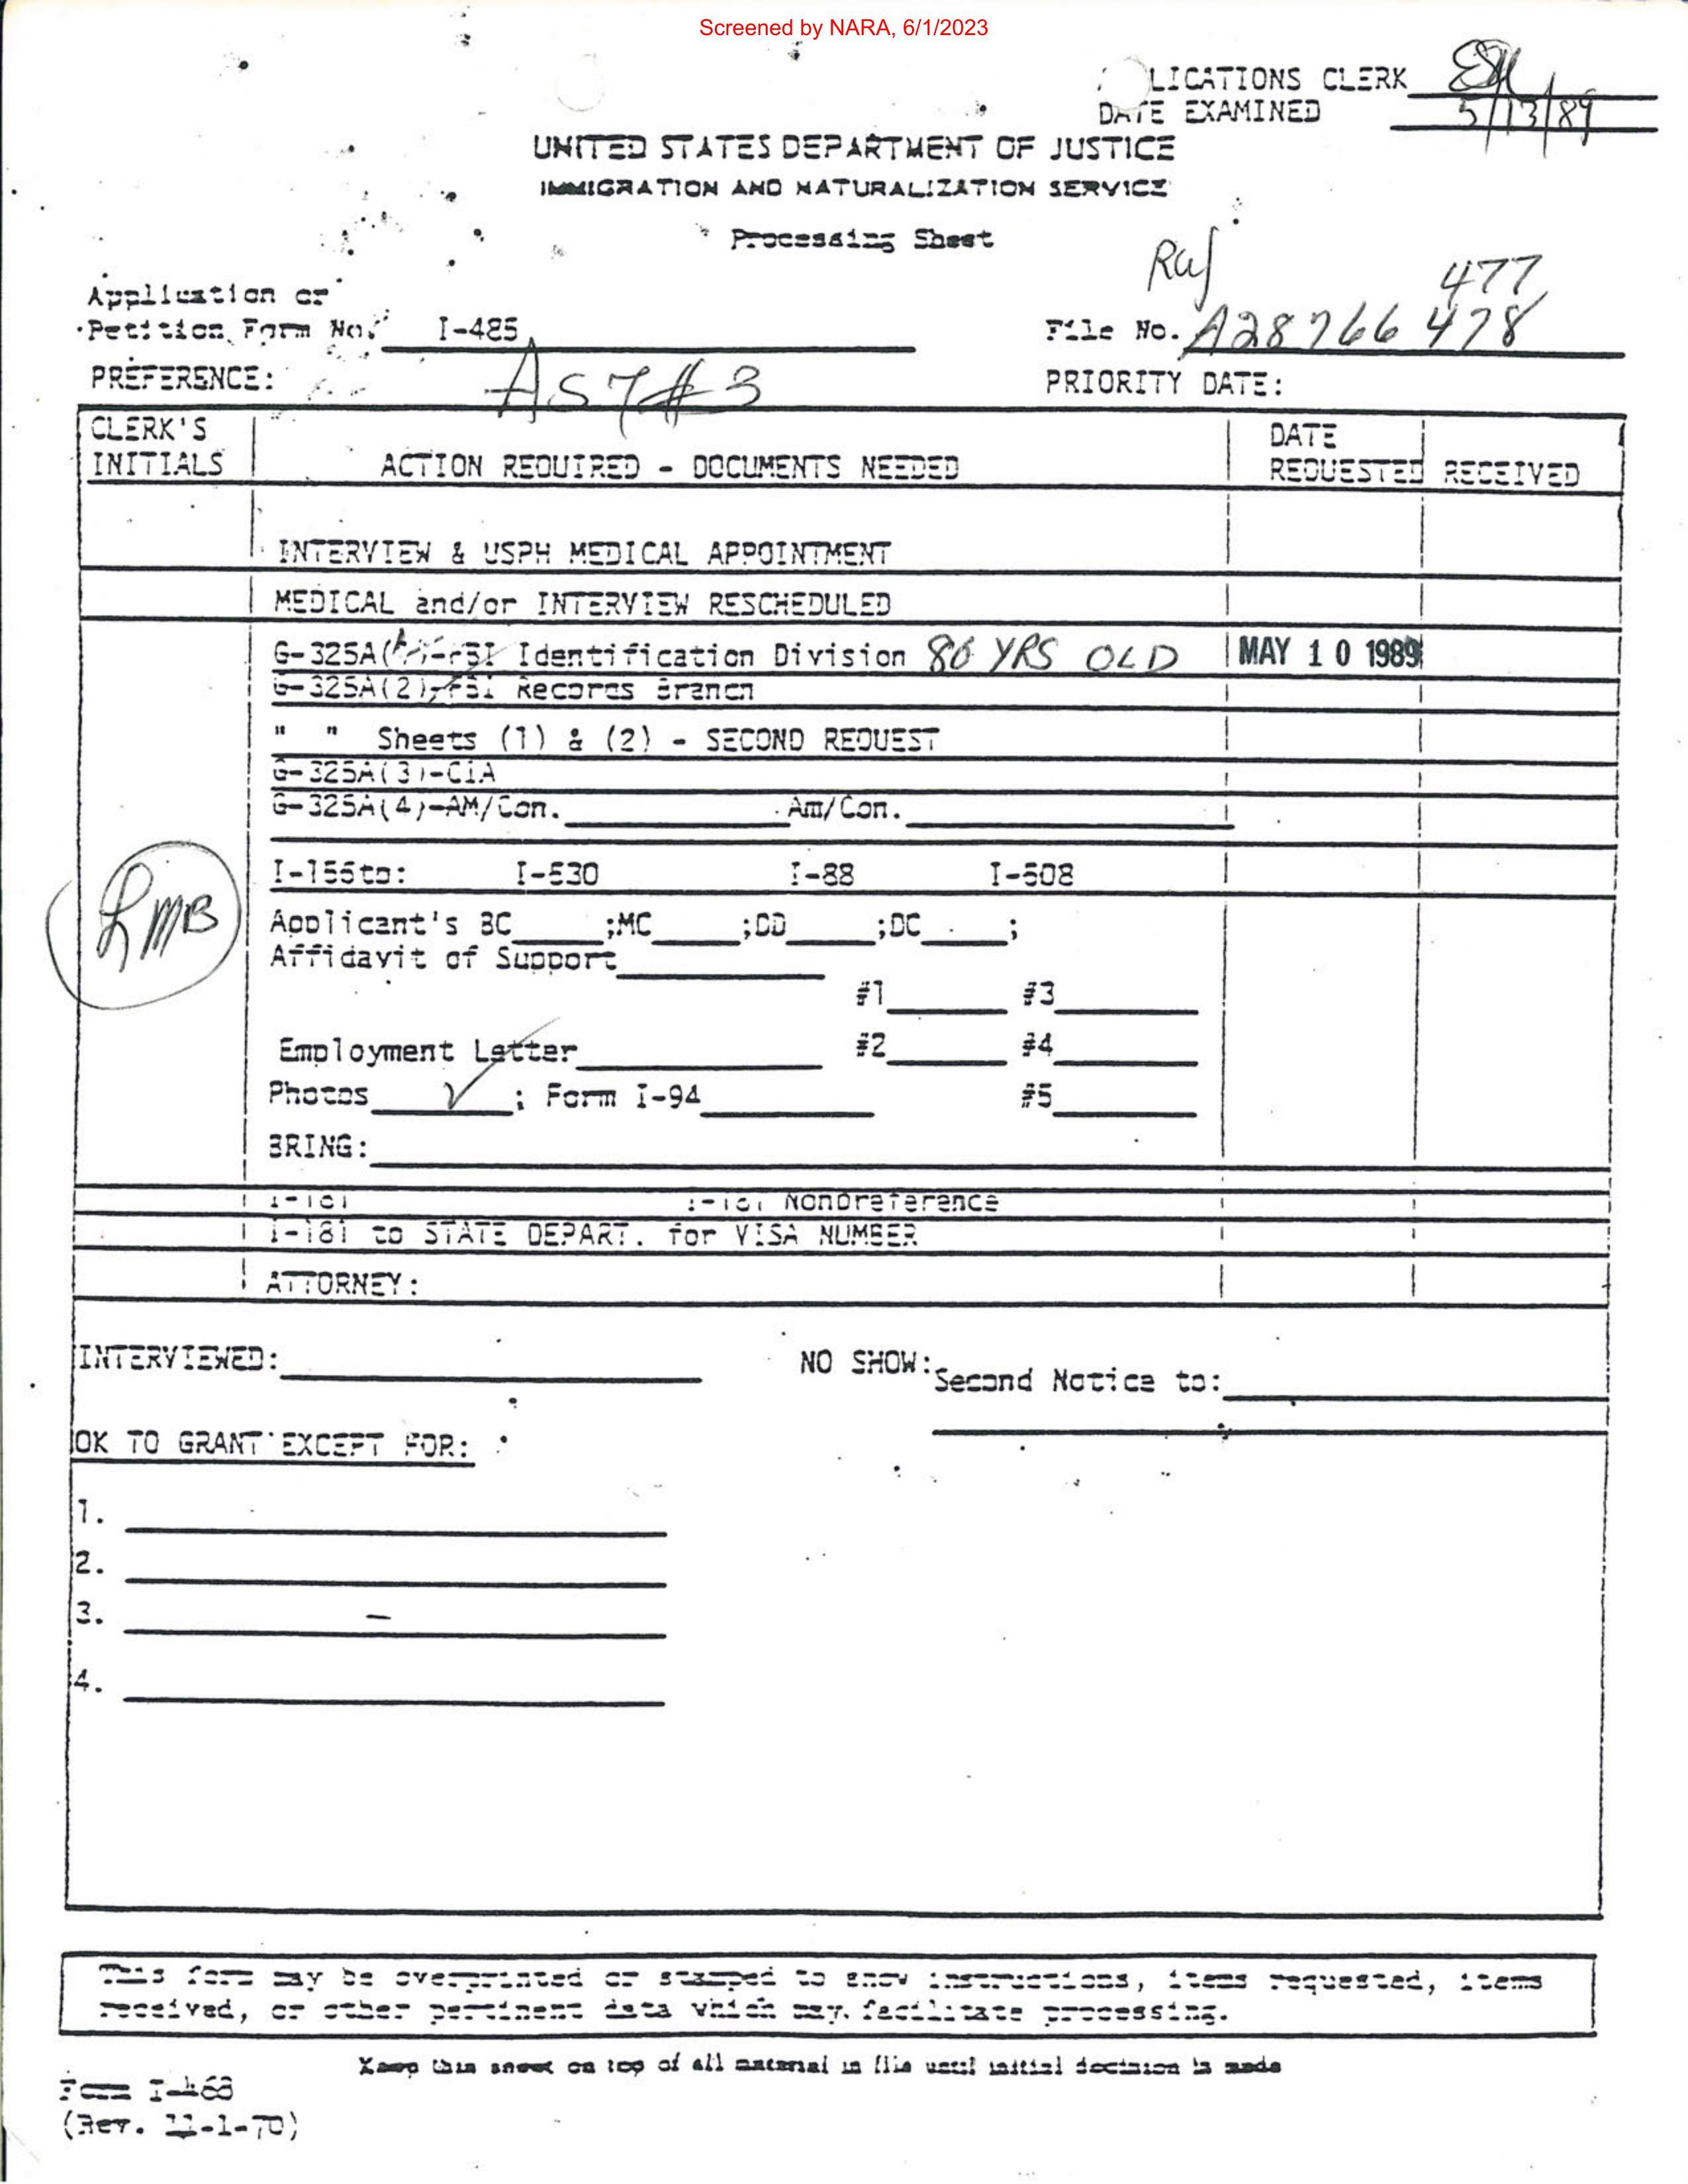 Screened by NARA, 6/1/2023
LICATIONS CLERK
DATE EXAMINED 5/13/89
UNITED STATES DEPARTMENT OF JUSTICE
IMMIGRATION AND NATURALIZATION SERVICE
Processing Sheet
477
Application or
Petition Form No. I-485
File No. A28766 478
PREFERENCE:
PRIORITY DATE:
CLERK'S
INITIALS
ACTION REQUIRED - DOCUMENTS NEEDED
DATE
REQUESTED
RECEIVED
INTERVIEW & USPH MEDICAL APPOINTMENT
MEDICAL and/or INTERVIEW RESCHEDULED
G-325A( )-FBI Identification Division 86 YRS OLD MAY 10 1989
G-325A(2)-FBI Records Branch
" " Sheets (1) & (2) - SECOND REQUEST
G-325A(3)-CIA
G-325A(4)-AM/Con. Am/Con.
I-530 I-88 I-508
LMB
Applicant's BC ;MC ;DD ;DC ;
Affidavit of Support
#1 #3
Employment Letter #2 #4
Photos ; Form I-94 #5
BRING:
I-181 I-181 Nonpreference
I-181 to STATE DEPART. for VISA NUMBER
ATTORNEY:
INTERVIEWED:
NO SHOW: Second Notice to:
OK TO GRANT EXCEPT FOR:
1.
2.
3.
4.
This form may be overprinted or stamped to show instructions, items requested, items
received, or other pertinent data which may facilitate processing.
Keep this sheet on top of all material in file until initial decision is made
Form I-468
(Rev. 11-1-70)